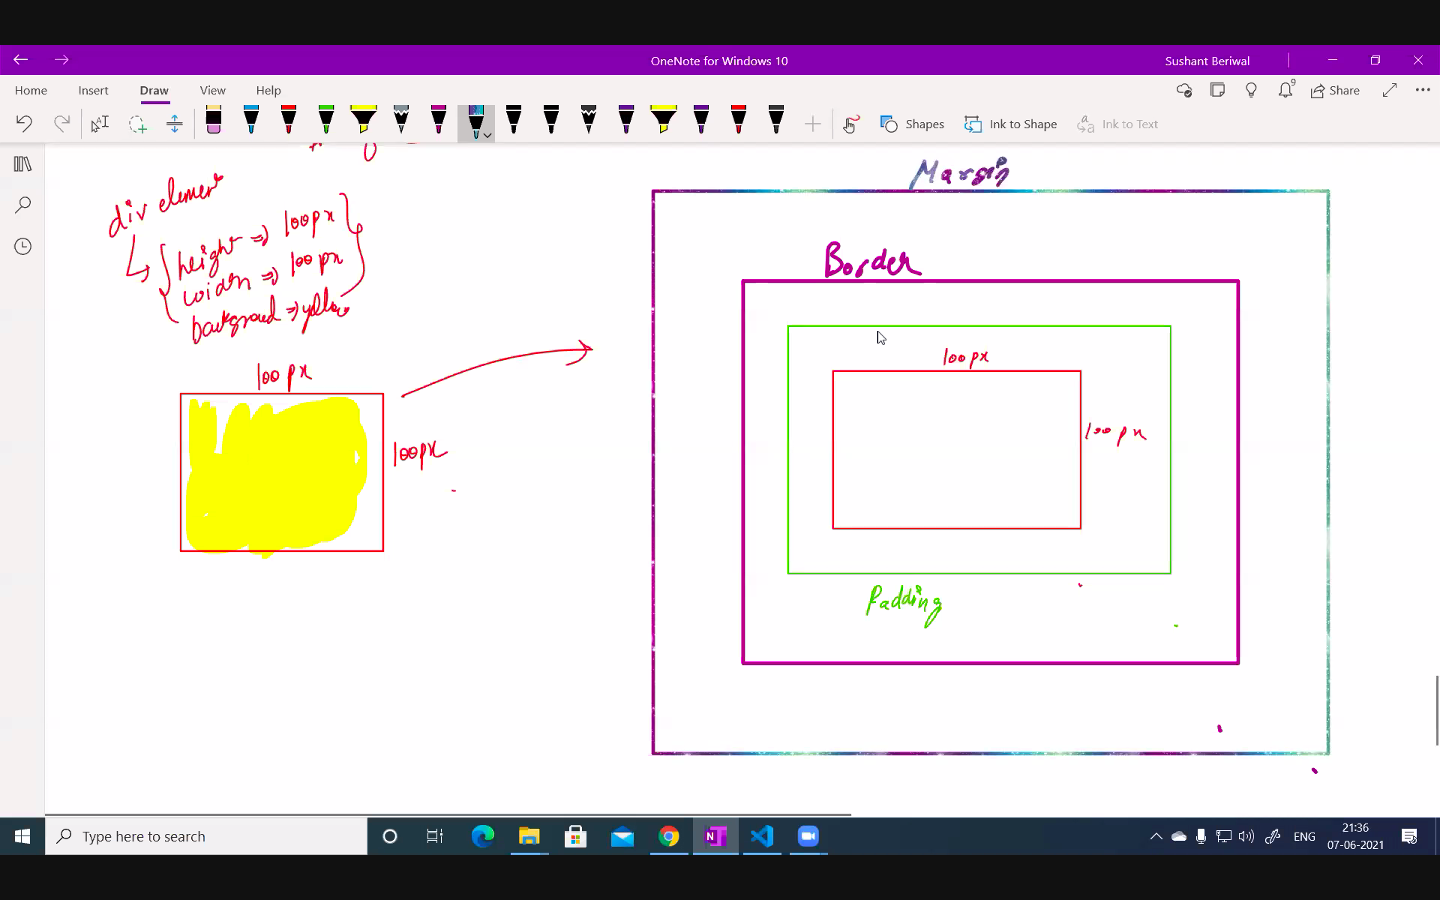 OneNote for Windows 10
Sushant Beriwal
Home Insert Draw View Help
9
Share
Shapes
Ink to Shape
Ink to Text
Margin
div element
height => 100px
width => 100px
background => yellow
Border
100px
100px
100px
100px
Padding
Type here to search
ENG
21:36
07-06-2021